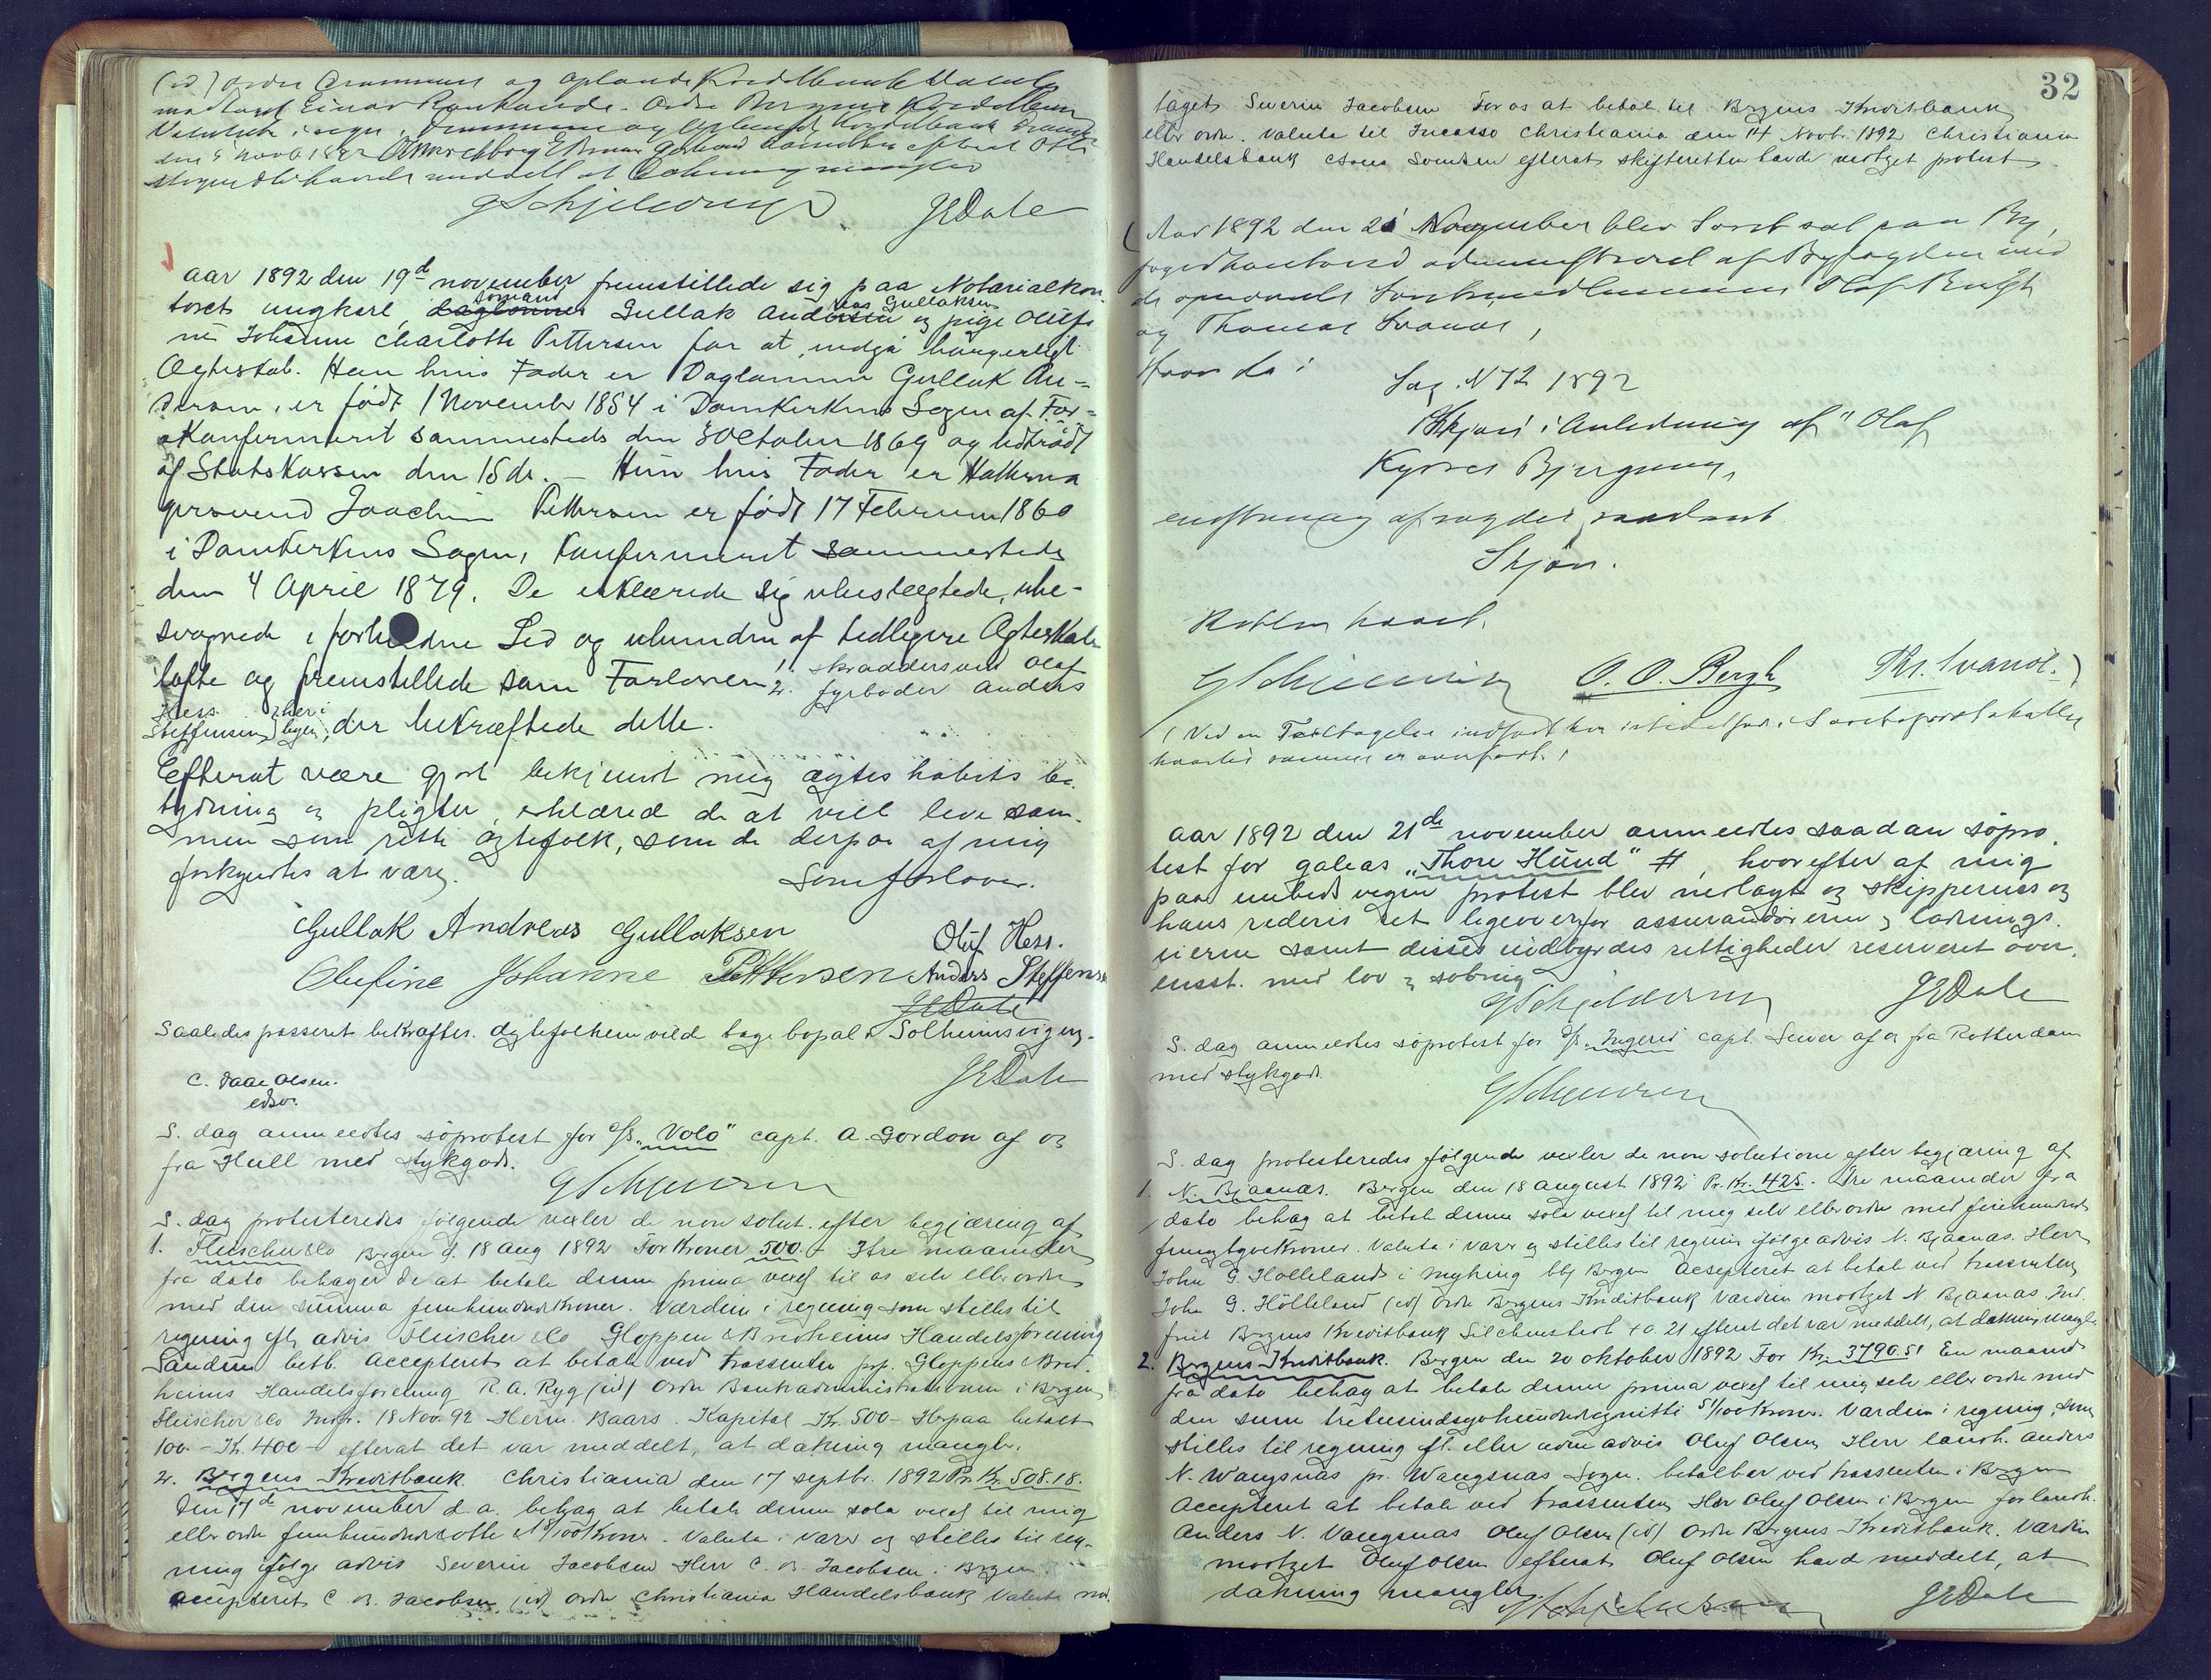 (id) Ordre Drammens og Oplands Kreditbank Valuta
modtaget Einar Ordre Bergens Kreditbank
Valuta i regn. Drammens og Oplands Kreditbank Dram
den 5 Novb 1892 efterat Otto
havde meddelt at Dækning mangler
GSchjelderup JEDale
aar 1892 den 19de november fremstillede sig paa Notarialkon-
toret ungkarl, daglønner sömand Gullak Andersen eas Gullaksen og pige Olufi-
ne Johanne Charlotte Pettersen for at indgå borgerligt
Ægteskab. Han hvis Fader er Daglønner Gullak An-
dersen, er født 1 November 1854 i Domkirkens Sogn af For-
Konfirmeret sammesteds den 3 October 1869 og udtrådt
af Statskirken den 15 ds. – Hun hvis Fader er Hattema
gersvend Joachim Pettersen er født 17 Februar 1860
i Domkirkens Sogn, Konfirmeret sammesteds
den 4 April 1879. De erklærede sig ubeslægtede, ube-
svogrede i forbudne Led og ubundne af tidligere Ægteskabs
løfte og fremstillede som Forlovere 1. skræddersvend Oluf
2. fyrbøder Anders
Hess
Steffensen, begge her i , der bekræftede dette.
Efterat være gjort bekjendt med ægteskabets be-
tydning og pligter, erklæred de at vill leve sam-
men som rette ægtefolk, som de derpaa af mig
forkyndtes at være.
Som forlover.
Gullak Andreas Gullaksen Oluf Hess.
Olufine Johanne Pettersen Anders Steffensen
JEDale
Saaledes passeret bekræftes. Ægtefolkene vilde tage bopæl i Solheimsvigen.
C. Daae Olsen. JEDale
edsv.
S. dag anmeldtes söprotest for d/s „Volo" capt. A. Gordon af og
fra Hull med stykgods.
GSchjelderup
S. dag protesteredes følgende vexler de non solut. efter begjæring af
1. Fleischer & Co Bergen d. 18 Aug 1892 For Kroner 500.– Tre maaneder
fra dato behager De at betale denne prima vexel til os selv eller ordre
med den summa femhundrede Kroner. Værdien i regning som stilles til
regning eft. advis Fleischer & Co Gloppen & Bredheims Handelsforening
Sandene betb. Accepteret at betale ved trassenten pp. Gloppens & Bred-
heims Handelsforening R. A. Ryg (id) Ordre Bankadministrationen i Bergen
Fleischer & Co Indfr. 18 Nov. 92 Herm. Baars. Kapital Kr. 500– Herpaa betalt
100.– Kr. 400– efterat det var meddelt, at dækning mangler.
2. Bergens Kreditbank. Christiania den 17 septbr. 1892 Pr. Kr. 508.18.
Den 17de november d. a. behag at betale denne sola vexel til mig
eller ordre femhundredeotte 18/100 Kroner. Valuta i varer og stilles til reg-
ning ifølge advis Severin Jacobsen Herr C. B. Jacobsen i Bergen
accepteret C. B. Jacobsen (id) Ordre Christiania Handelsbank Valuta mod.
32
taget Severin Jacobsen For os at betale til Bergens Kreditbank
eller ordre. Valuta til Incasso Christiania den 14 Novbr. 1892 Christiania
Handelsbank Svendsen efterat skifteretten havde vedtaget protest
(Aar 1892 den 21 November blev Soret sat paa By-
fogedkontoret administreret af Byfogden med
de opnævnte Oluf Bergh
og Thomas Svanøe,
Hvor da:
Sag N 72 1892
Skjøn i Anledning af "Olaf
Kyrres Bjergning,
afsagdes saadant
Skjøn.
Retten hævet.
GSchjelderup O. O. Bergh Th. Svanöe.)
(Ved en Feiltagelse indført her istedetfor i Soretsprotokollen
hvortil samme er overført.)
aar 1892 den 21de november anmeldtes saadan söpro-
test for galeas „Thore Hund" #, hvorefter af mig
paa embeds vegne protest blev nedlagt og skipperens og
hans rederis ret ligeoverfor assurandørerne og ladnings-
eierne samt disses indbyrdes rettigheder reserveret over-
ensst. med lov og søbrug
GSchjelderup JEDale
S. dag anmeldtes söprotest for d/s „Ingerid" capt. Sever af og fra Rotterdam
med stykgods.
GSchjelderup
S. dag protesteredes følgende vexler de non solutione efter begjæring af
1. N. Bjaanæs. Bergen den 18 august 1892 Pr. Kr. 425.– Tre maaneder fra
dato behag at betale denne sola vexel til mig selv eller ordre med firehundrede
femogtyve Kroner. Valuta i varer og stilles til regning ifølge advis N. Bjaanæs. Herr
John G. Hölleland i Myking bbg Bergen Accepteret at betale ved trassenten
John G. Hölleland (id) Ordre Bergens Kreditbank Værdien modtaget N. Bjaanæs. Ind-
friet Bergens Kreditbank s. d. 21 efterat det var meddelt, at dækning mangler
2. Bergens Kreditbank. Bergen den 20 oktober 1892 For Kr. 3790.51 En maaned
fra dato behag at betale denne prima vexel til mig selv eller ordre med
den sum tretusindsyvhundredeognitti 51/100 Kroner. Værdien i regning, som
stilles til regning eft. eller uden advis Oluf Olsen Herr landh. Anders
N. Wangsnæs pr. Wangsnæs Sogn. betalbar ved trassenten i Bergen
Accepteret at betale ved trassenten Herr Oluf Olsen i Bergen for landh.
Anders N. Vangsnæs Oluf Olsen (id) Ordre Bergens Kreditbank. Værdien
modtaget Oluf Olsen efterat Oluf Olsen havde meddelt, at
dækning mangler
GSchjelderup JEDale